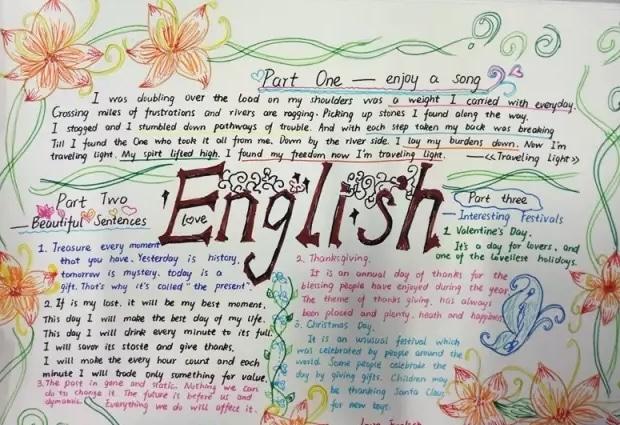 Part One — enjoy a song
I was doubling over the load on my shoulders was a weight I carried with everyday.
Crossing miles of frustrations and rivers are ragging. Picking up stones I found along the way.
I stagged and I stumbled down pathways of trouble. And with each step taken my back was breaking
Till I found the One who took it all from me. Down by the river side. I lay my burdens down. Now I'm
traveling light. My spirt lifted high. I found my freedom now I'm traveling light. —《Traveling Light》
English
love
Part Two
— Beautiful Sentences
1. Treasure every moment
that you have. Yesterday is history.
tomorrow is mystery. today is a
gift. That's why it's called "the present".
2. It is my last. it will be my best moment.
This day I will make the best day of my life.
This day I will drink every minute to its full.
I will savor its staste and give thanks.
I will make the every hour count and each
minute I will trade only something for value.
3. The past in gone and static. Nothing we can
do to change it. The future is before us and
dymamic. Everything we do will affect it.
Part three
— Interesting Festivals
1 Valentine's Day.
It's a day for lovers. and
one of the loveliest holidays.
2. Thanksgiving.
It is an annual day of thanks for the
blessing people have enjoyed during the year
The theme of thanks giving. has always
been placed and plenty. heath and happiness
3. Christmas Day.
It is an unusual festival which
was celebrated by people around the
world. Some people celebrate the
day by giving gifts. Children may
be thanking Santa Claus
for new toys.